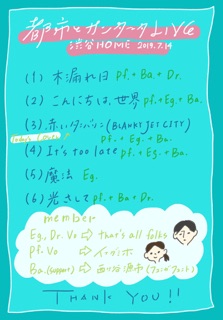 都市とカンタータ LIVE
渋谷HOME 2019.7.14
(1) 木漏れ日 Pf.+Ba.+Dr.
(2) こんにちは、世界 Pf.+Eg.+Ba.
(3) 赤いタンバリン (BLANKEY JET CITY)
Today's Cover! Pf.+Eg.+Ba.
(4) It's too late Pf.+Eg.+Ba.
(5) 魔法 Eg.
(6) 光さして Pf.+Ba.+Dr.
member
Eg, Dr. Vo ⇨ that's all folks
Pf. Vo ⇨
Ba. (support) ⇨
THANK YOU!!